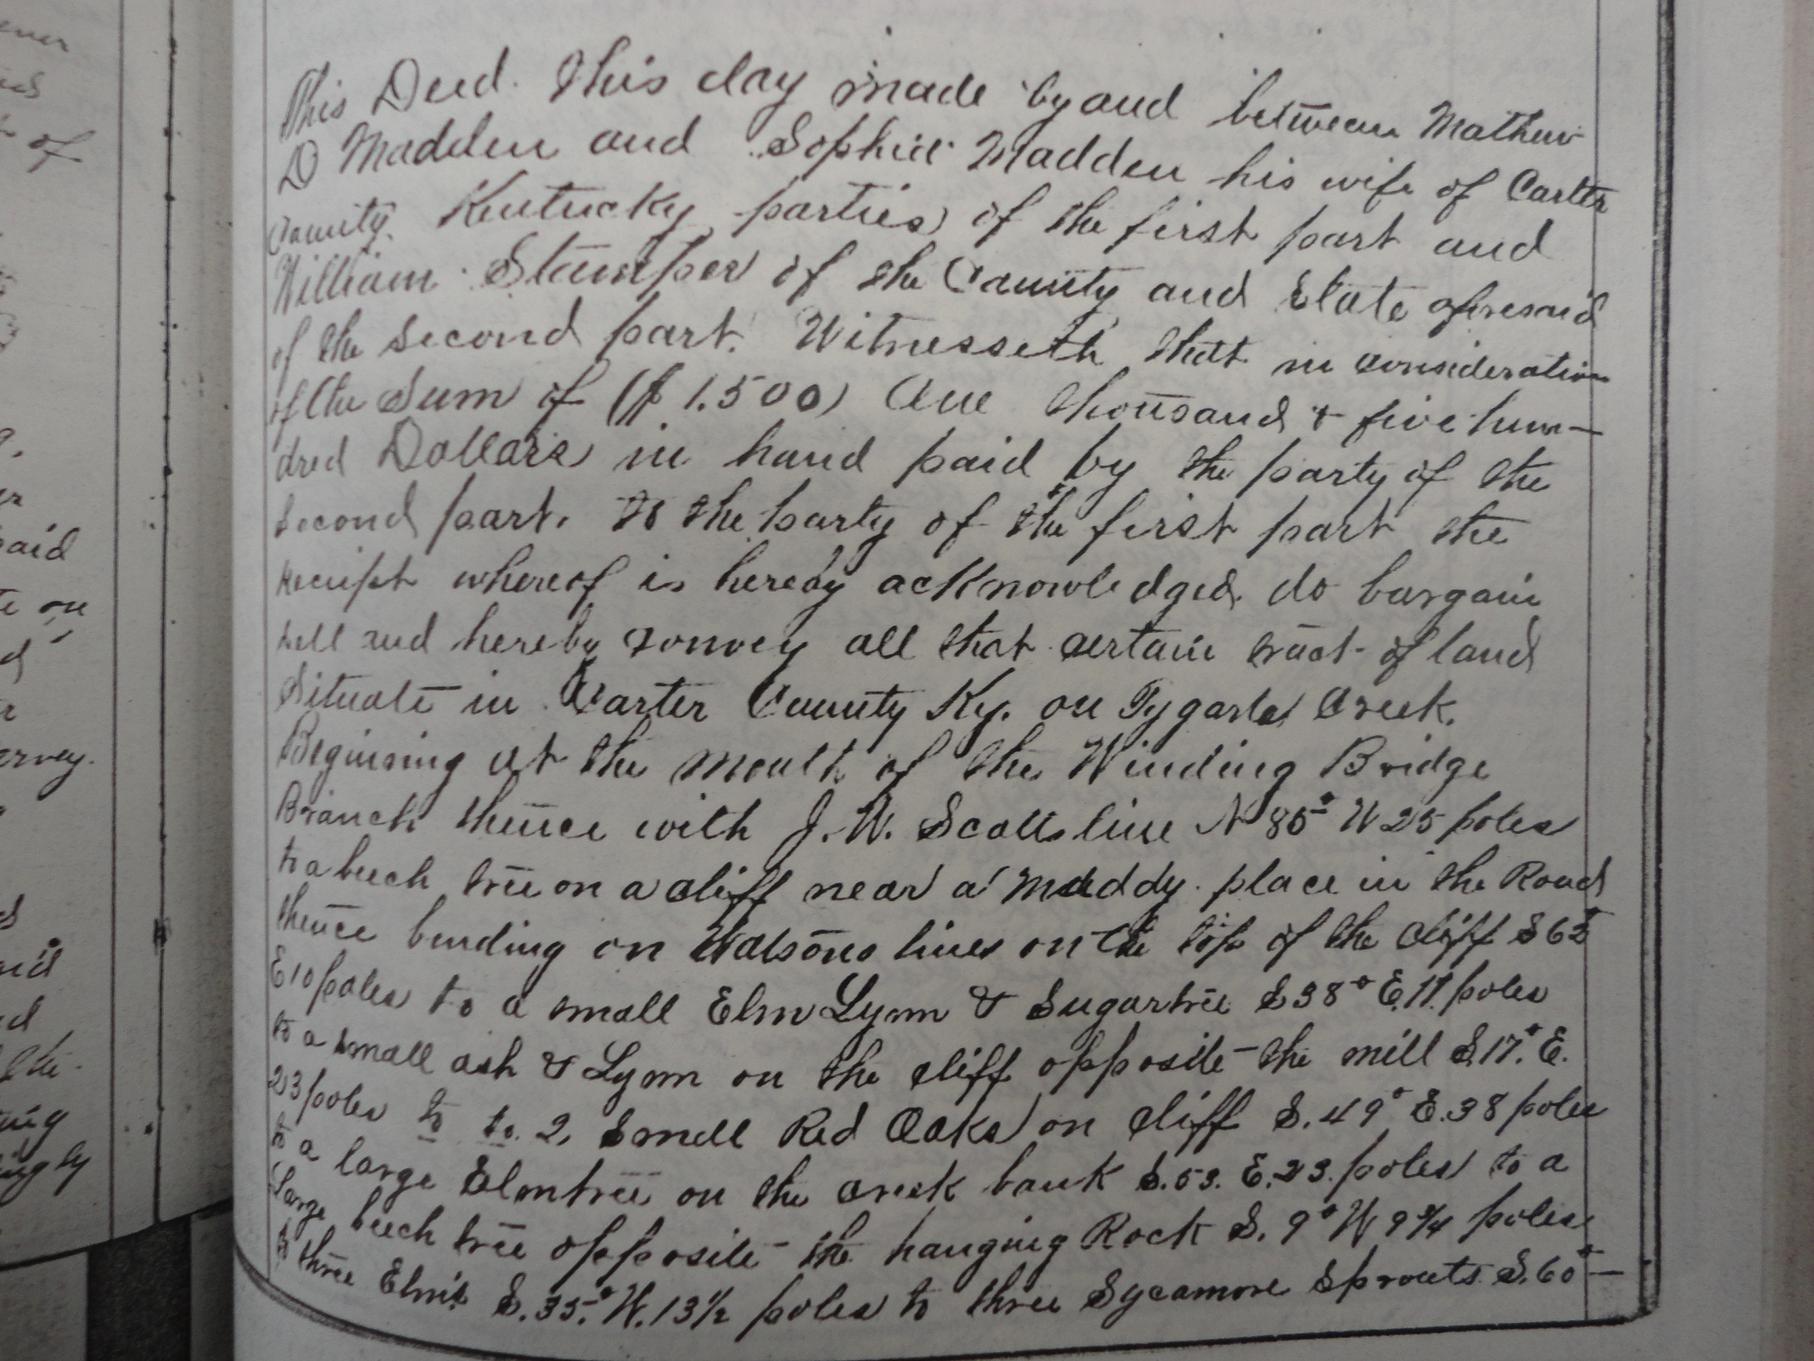 This Deed. This day made by and between Mathew
D Madden and Sophia Madden his wife of Carter
County. Kentucky parties of the first part and
William Stamper of the County and State aforesaid
of the second part. Witnesseth that in consideration
of the Sum of ($1.500) One thousand & five hun-
dred Dollars in hand paid by the party of the
second part. to the party of the first part the
receipt whereof is hereby acknowledged. do bargain
sell and hereby convey all that certain tract of land
Situate in Carter County Ky. on Tygarts Creek.
Begining at the mouth of the Winding Bridge
Branch thence with J. W. Scotts line N 85° W 25 poles
to a beech tree on a cliff near a muddy place in the Road
thence bending on Watsons lines on the top of the cliff S 65°
E 10 poles to a small Elm Lynn & Sugartree S 38° E. 11 poles
to a small ash & Lynn on the cliff opposite the mill S. 17° E.
23 poles to to 2, small Red Oaks on cliff S. 49° E. 38 poles
to a large Elmtree on the creek bank S. 53. E. 23. poles to a
large beech tree opposite the hanging Rock S. 9° W 9 3/4 poles
to three Elms S. 35° W. 13 1/2 poles to three Sycamore Sprouts S. 60°
ener
of
paid
on
ervey.
the
ing